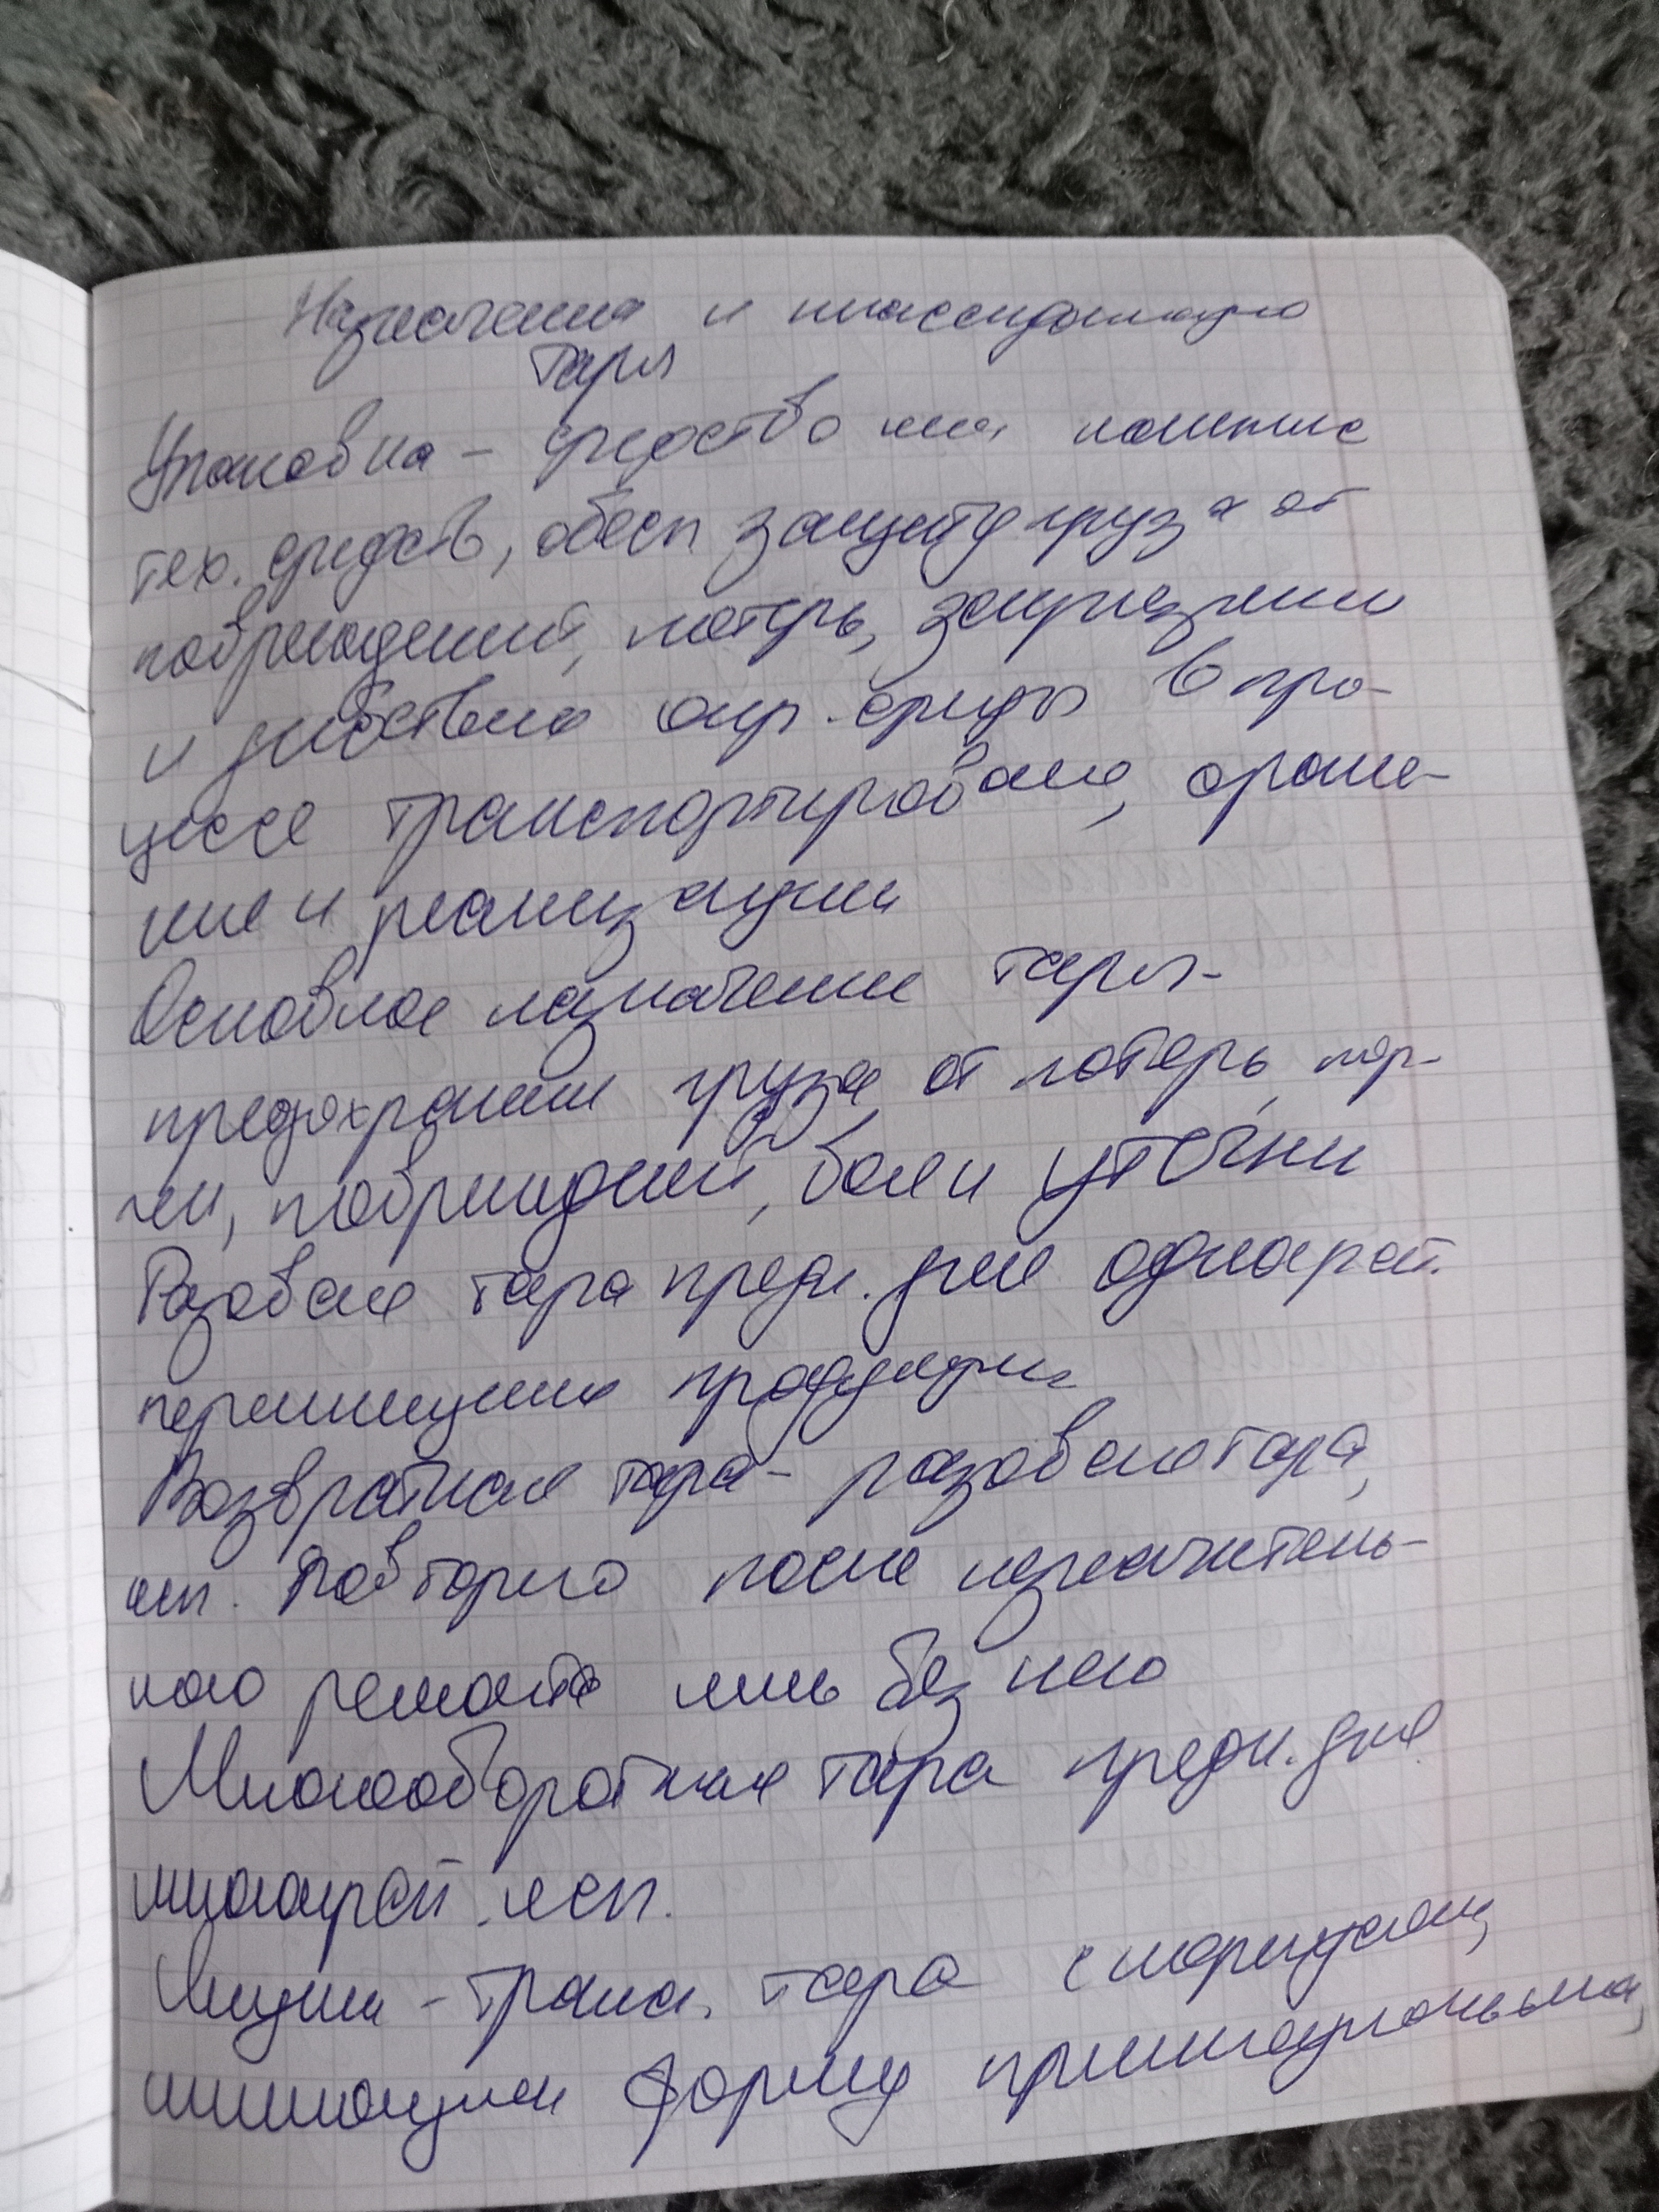 Назначения и классификацию
тары
Упаковка - средство или комплекс
тех. средств, обесп защиту груза от
повреждений, потерь, загрязнени
и действия окр. среды в про-
цессе транспортирования, хране-
ние и реализации
Основное назначение тары-
предохранение груза от потерь, пор-
чи, повреждений, боя и утечки
Разовая тара предн. для однократ.
перемещения продукции
Возвратная тара - разовая тара,
исп. повторно после незначитель-
ного ремонта или без него
Многооборотная тара предн. для
многократ. исп.
Ящики - транс. тара с корпусом,
имеющим форму